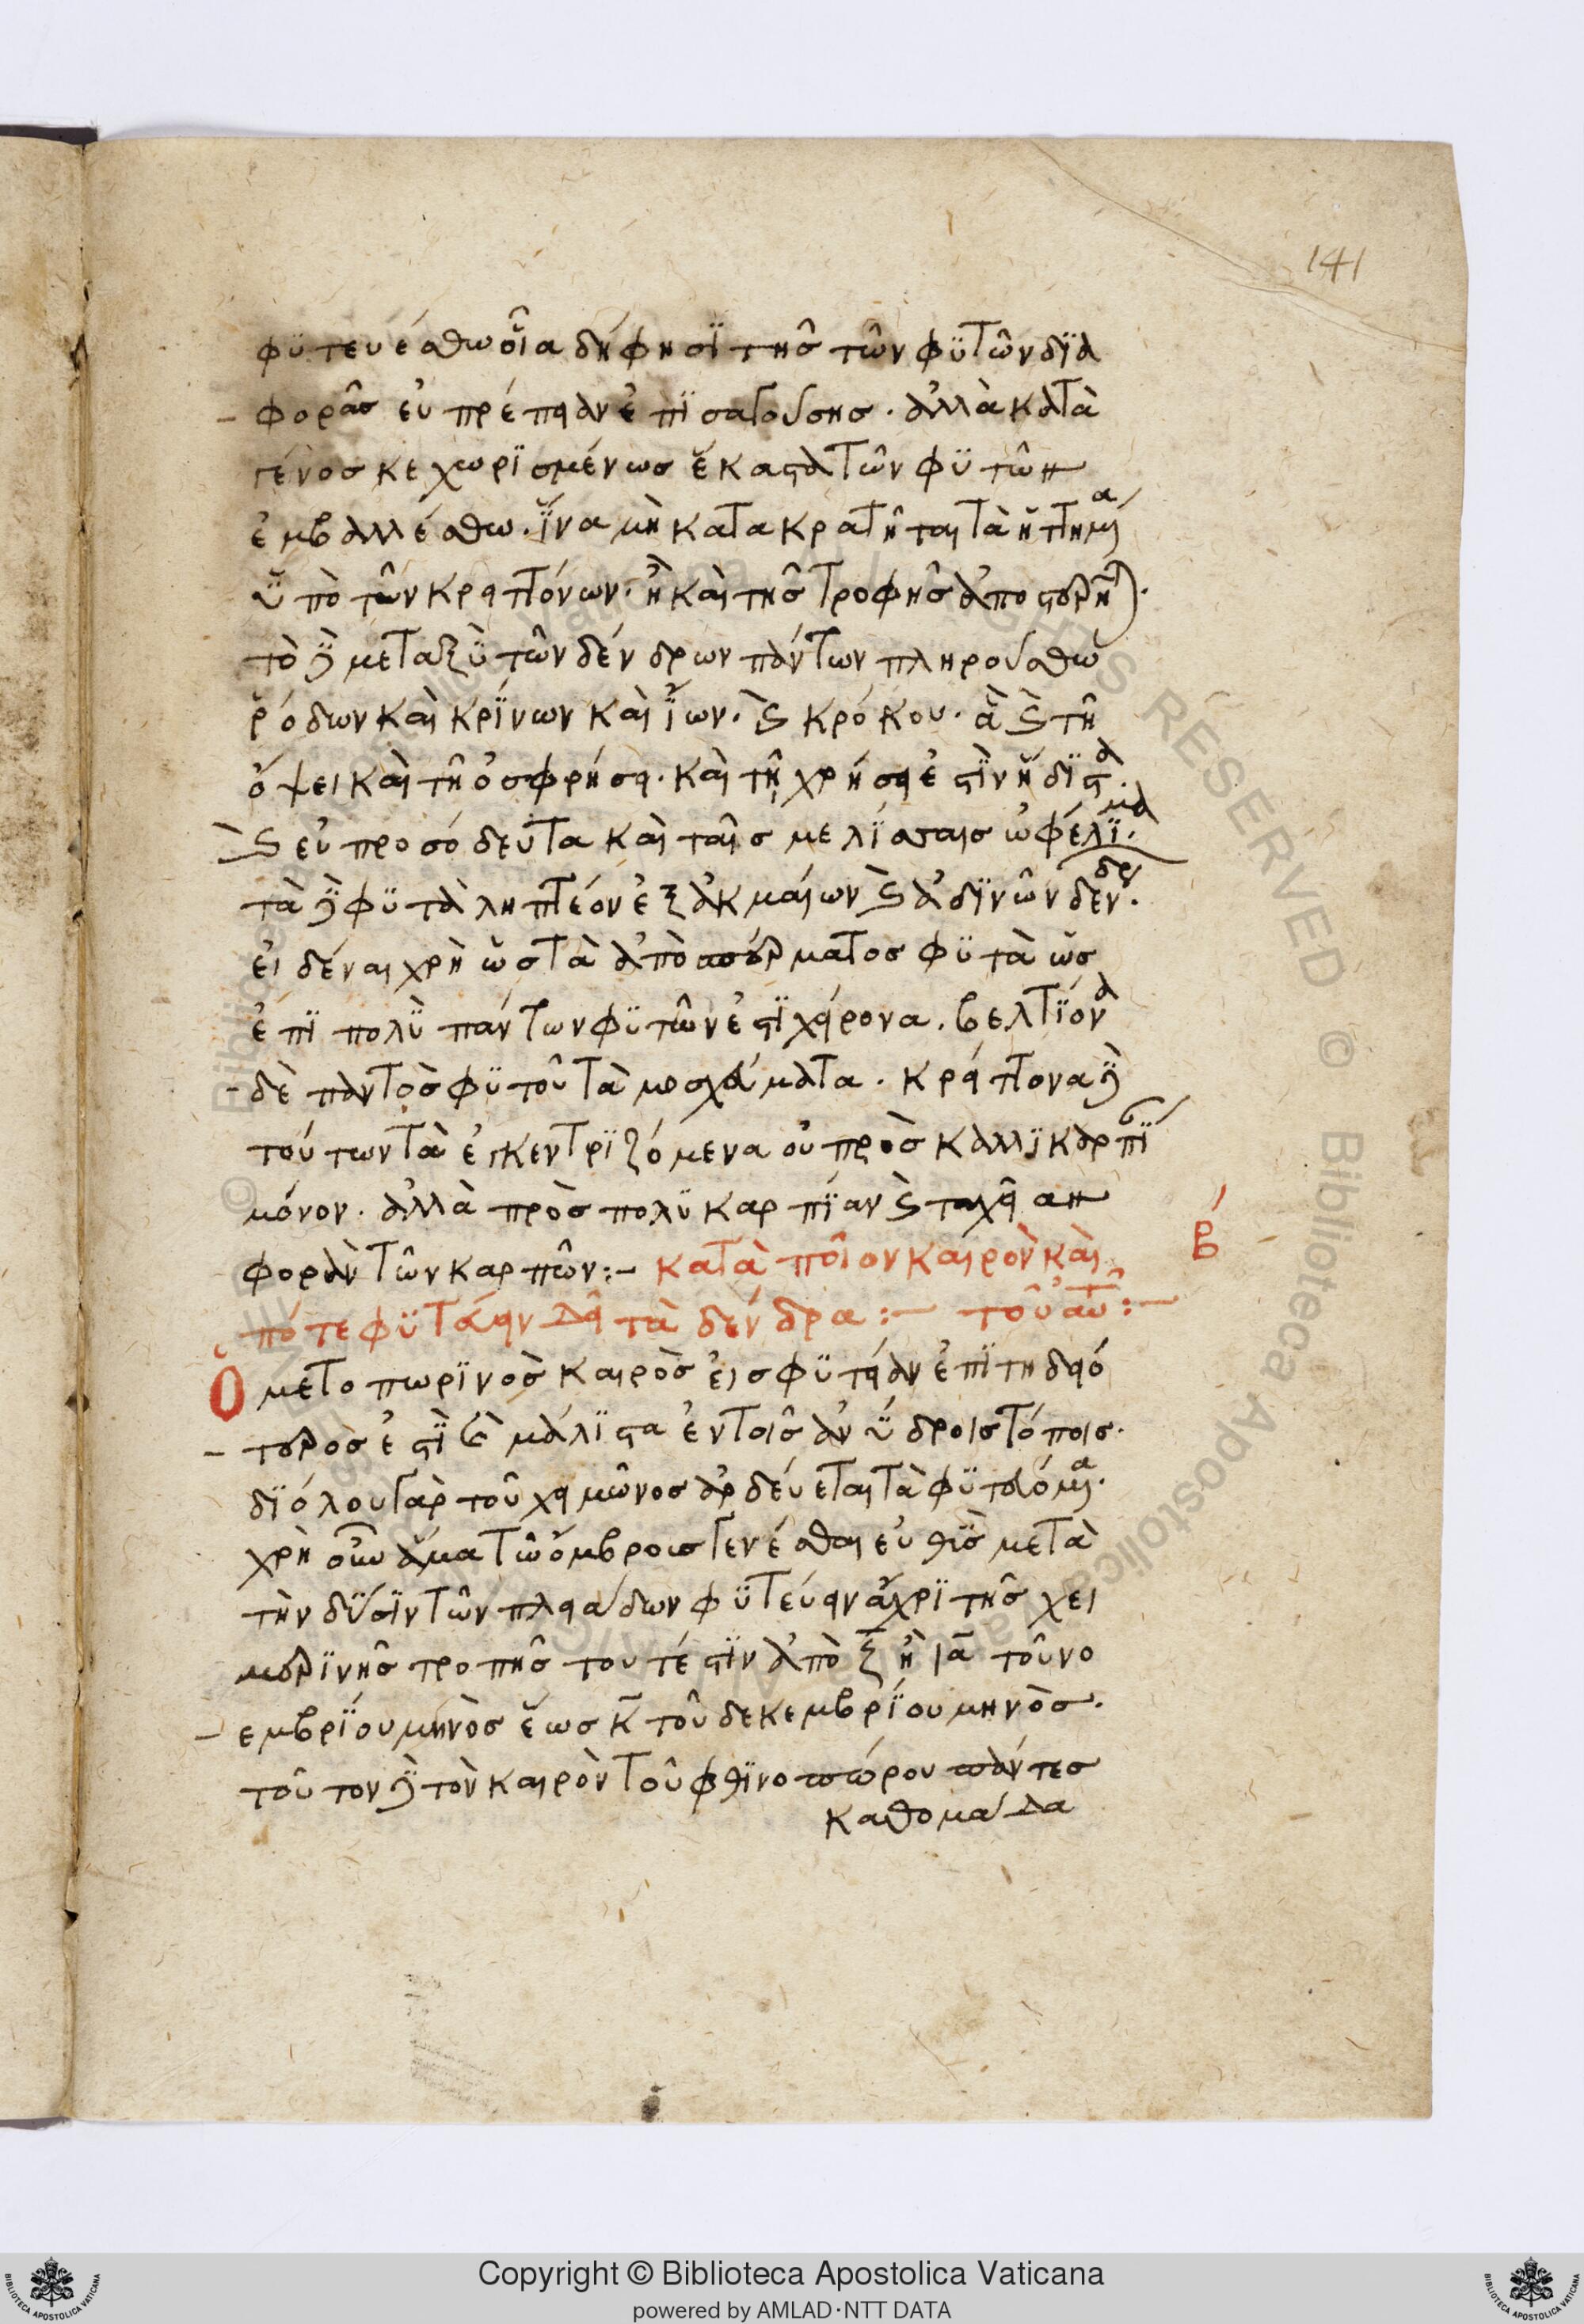 141
φϋτευέσθω οἷα δή φησϊ τῆς τῶν φϋτῶν δϊα
φορᾶς εὐπρέπειαν ἐπϊσαγούσης. ἀλλὰ κατὰ
γένος κεχωρϊσμένως ἕκαστα τῶν φϋτῶν
ἐμβαλλέσθω. ἵνα μὴ κατακρατῆται τὰ ἥττημα
ϋπὸ τῶν κρειττόνων. ἢ καὶ τῆς τροφῆς ἀποστερῆται.
τὸ δὲ μεταξϋ τῶν δένδρων πάντων πληρούσθω
ῥόδων καὶ κρϊνων καὶ ἴων. καὶ κρόκου. ἃ καὶ τῆ
όψει καὶ τῆ ὀσφρήσει. καὶ τῆ χρήσει ἐστϊν ἥδϊστα.
καὶ εὐπροσόδευτα καὶ ταῖς μελϊσσαις ὠφέλϊμα.
τὰ δὲ φϋτὰ ληπτέον ἐξ ἀκμαίων καὶ ἀσϊνῶν δένδρ.
εἰδέναι χρὴ ὡς τὰ ἀπὸ σπέρματος φϋτὰ ὡς
ἐπϊ πολϋ πάντων φϋτῶν ἐστϊ χείρονα. βελτϊόνα
δὲ παντὸς φϋτοῦ τὰ μοσχεύματα. κρείττονα δὲ
τούτων τὰ ἐγκεντρϊζόμενα οὐ πρὸς καλλϊκαρπϊ
μόνον. ἀλλὰ πρὸς πολϋκαρπϊαν καὶ ταχεῖαν
φορὰν τῶν καρπῶν:- κατὰ ποῖον καιρὸν καὶ
β
πότε φϋτεύειν δεῖ τὰ δένδρα:- τοῦ αὐτοῦ:-
Ὁ μετοπωρϊνὸς καιρὸς εἰς φϋτείαν ἐπϊτηδειό
τερός ἐστϊ καὶ μάλϊστα ἐν τοῖς ἀνϋδροις τόποις.
δϊόλου γὰρ τοῦ χειμῶνος ἀρδεύεται τὰ φϋτευόμενα.
χρὴ οὖν ἅμα τῶ ὄμβροις γενέσθαι εὐθὺς μετὰ
τὴν δϋσϊν τῶν πλειάδων φϋτεύειν ἄχρϊ τῆς χει
μερϊνῆς τροπῆς τουτέστϊν ἀπὸ ζ ἢ ια τοῦ νο
εμβρϊου μηνὸς ἕως κ τοῦ δεκεμβρϊου μηνὸς.
τοῦτον δὲ τὸν καιρὸν τοῦ φθϊνοπώρου πάντες
καθομάδα
Copyright © Biblioteca Apostolica Vaticana
powered by AMLAD·NTT DATA